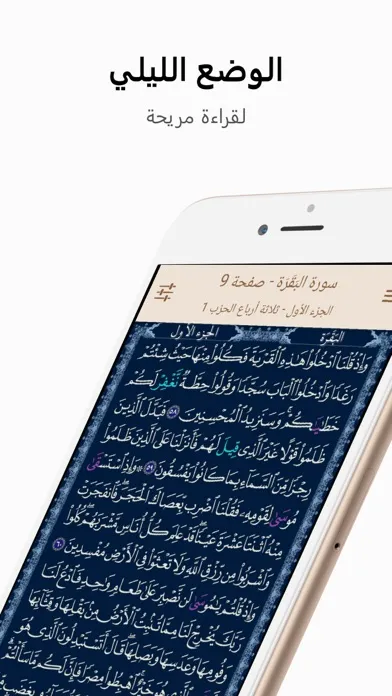 الوضع الليلي
لقراءة مريحة
سورة البَقَرَة - صفحة 9
الجزء الأول - ثلاثة أرباع الحزب 1
البَّقَرَة الجزء الأول
وَإِذْ قُلْنَا ٱدْخُلُوا۟ هَٰذِهِ ٱلْقَرْيَةَ فَكُلُوا۟ مِنْهَا حَيْثُ شِئْتُمْ
رَغَدًا وَٱدْخُلُوا۟ ٱلْبَابَ سُجَّدًا وَقُولُوا۟ حِطَّةٌ تُغْفَرْ لَكُمْ
خَطَٰيَٰكُمْ وَسَنَزِيدُ ٱلْمُحْسِنِينَ ٥٨ فَبَدَّلَ ٱلَّذِينَ
ظَلَمُوا۟ قَوْلًا غَيْرَ ٱلَّذِى قِيلَ لَهُمْ فَأَنزَلْنَا عَلَى ٱلَّذِينَ ظَلَمُوا۟
رِجْزًا مِّنَ ٱلسَّمَآءِ بِمَا كَانُوا۟ يَفْسُقُونَ ٥٩ وَإِذِ ٱسْتَسْقَىٰ
مُوسَىٰ لِقَوْمِهِۦ فَقُلْنَا ٱضْرِب بِّعَصَاكَ ٱلْحَجَرَ فَٱنفَجَرَتْ
مِنْهُ ٱثْنَتَا عَشْرَةَ عَيْنًا قَدْ عَلِمَ كُلُّ أُنَاسٍ مَّشْرَبَهُمْ كُلُوا۟
وَٱشْرَبُوا۟ مِن رِّزْقِ ٱللَّهِ وَلَا تَعْثَوْا۟ فِى ٱلْأَرْضِ مُفْسِدِينَ ٦٠
وَإِذْ قُلْتُمْ يَٰمُوسَىٰ لَن نَّصْبِرَ عَلَىٰ طَعَامٍ وَٰحِدٍ فَٱدْعُ لَنَا
رَبَّكَ يُخْرِجْ لَنَا مِمَّا تُنۢبِتُ ٱلْأَرْضُ مِنۢ بَقْلِهَا وَقِثَّآئِهَا
وَفُومِهَا وَعَدَسِهَا وَبَصَلِهَا قَالَ أَتَسْتَبْدِلُونَ ٱلَّذِى هُوَ
هُوَ خَيْرٌ ٱهْبِطُوا۟ مِصْرًا فَإِنَّ لَكُم مَّا سَأَلْتُمْ